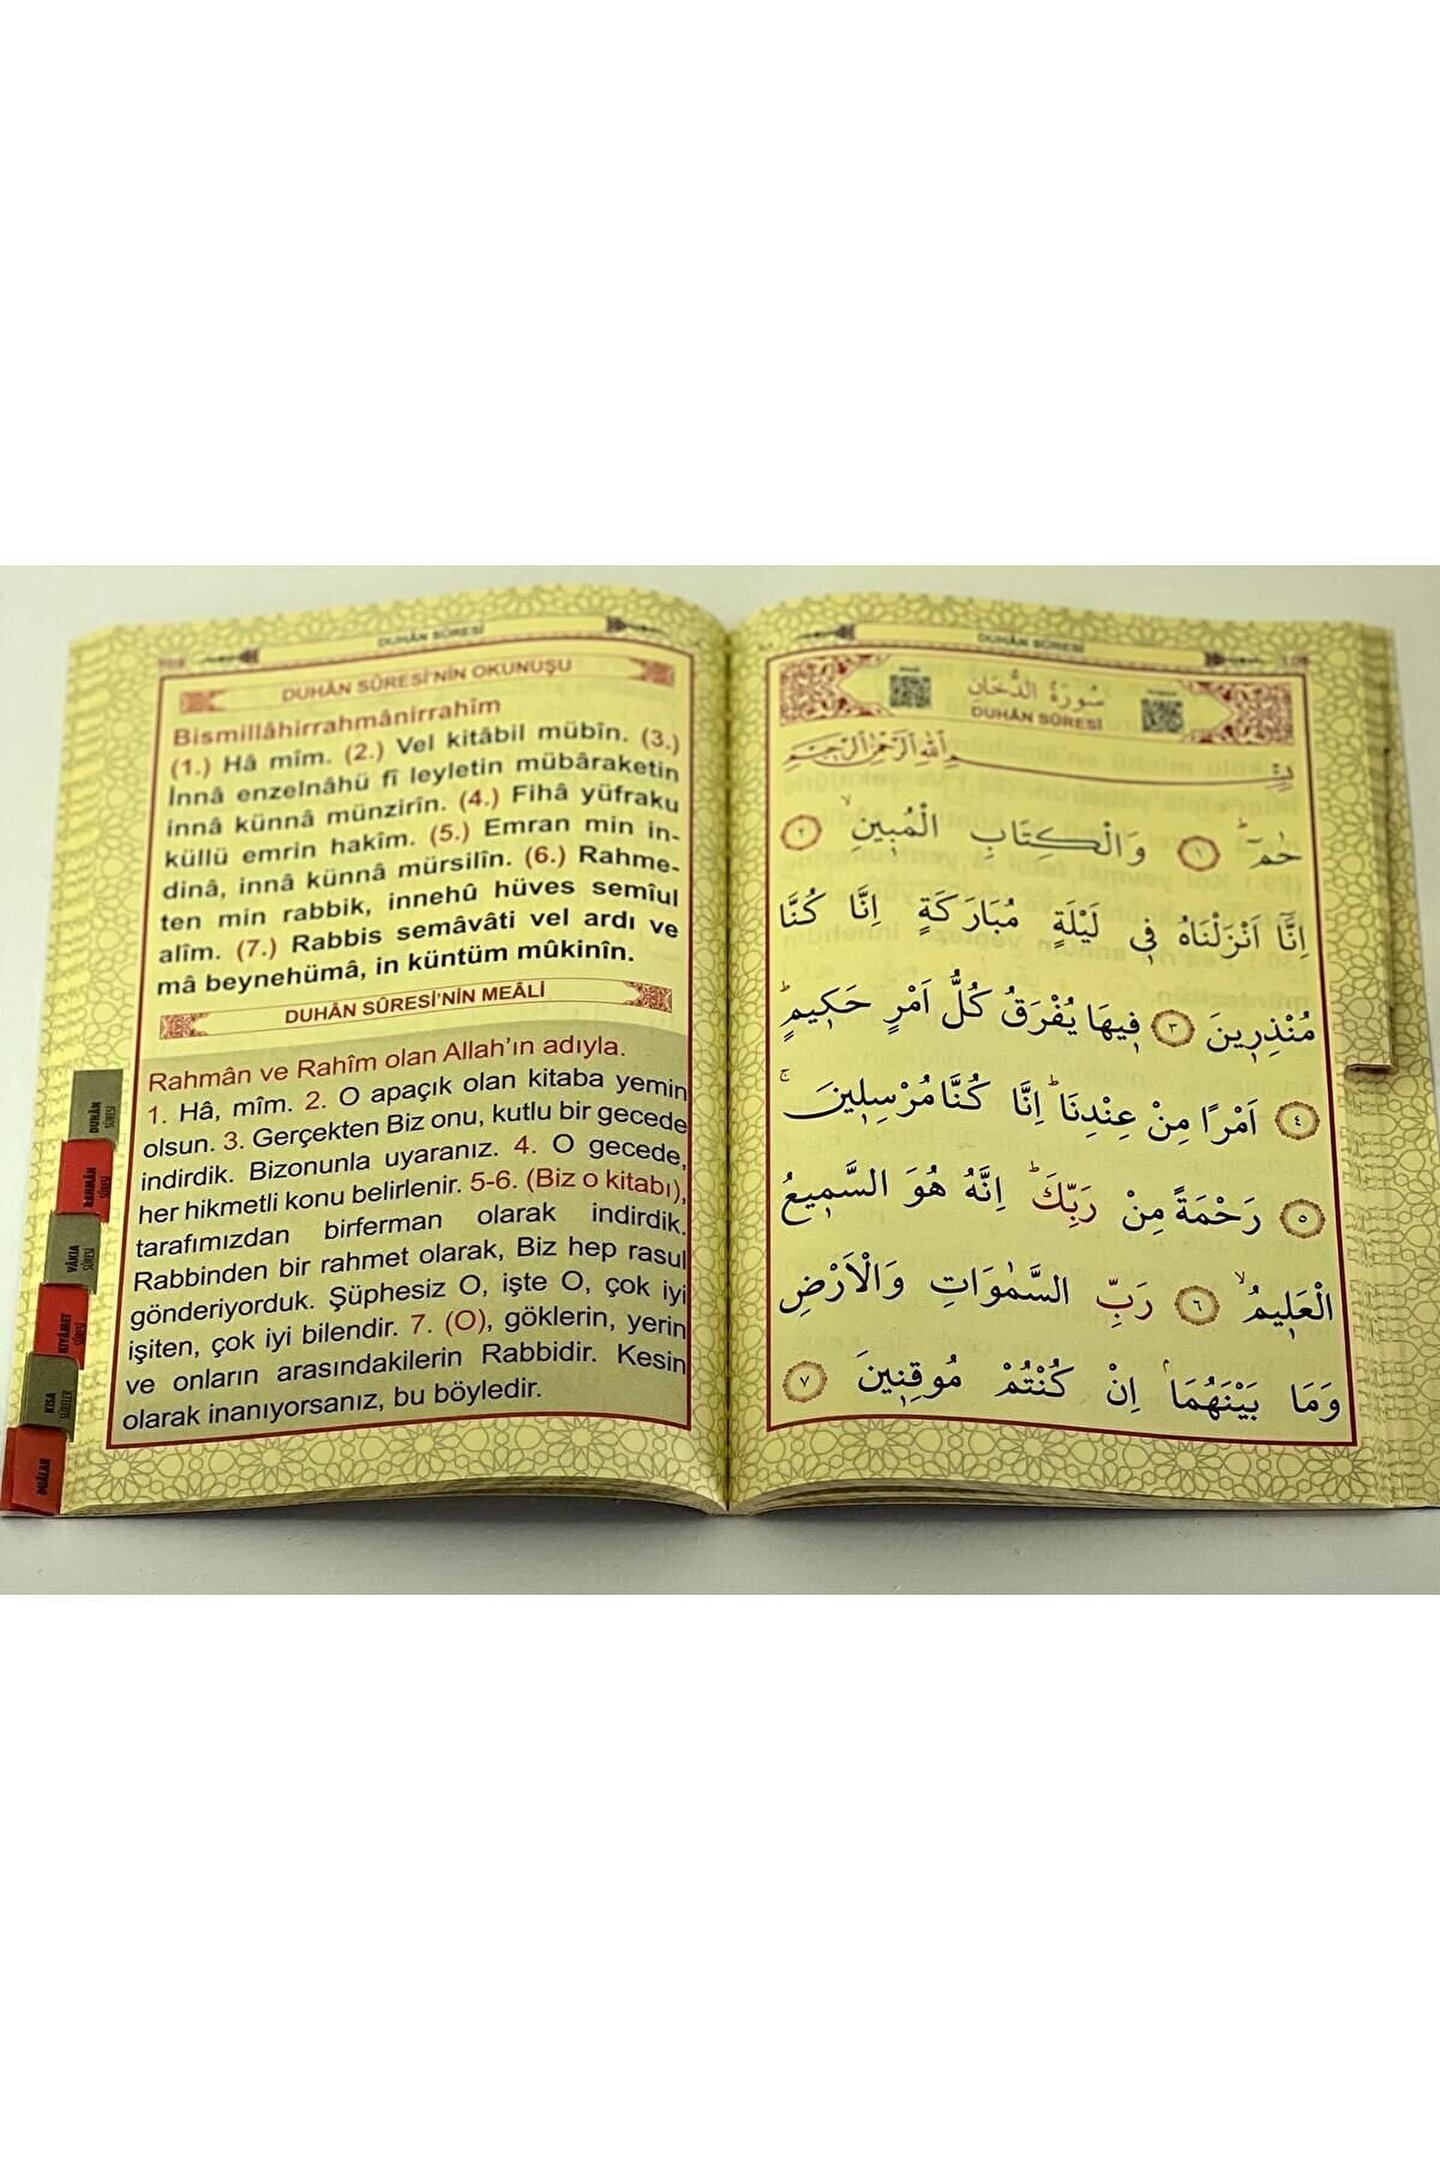 DUHÂN SÛRESİ
DUHÂN SÛRESİ'NİN OKUNUŞU
Bismillâhirrahmânirrahîm
(1.) Hâ mîm. (2.) Vel kitâbil mübîn. (3.)
İnnâ enzelnâhü fî leyletin mübâraketin
innâ künnâ münzirîn. (4.) Fihâ yüfraku
küllü emrin hakîm. (5.) Emran min in-
dinâ, innâ künnâ mürsilîn. (6.) Rahme-
ten min rabbik, innehû hüves semîul
alîm. (7.) Rabbis semâvâti vel ardı ve
mâ beynehümâ, in küntüm mûkinîn.
DUHÂN SÛRESİ'NİN MEÂLİ
Rahmân ve Rahîm olan Allah'ın adıyla.
1. Hâ, mîm. 2. O apaçık olan kitaba yemin
olsun. 3. Gerçekten Biz onu, kutlu bir gecede
indirdik. Bizonunla uyaranız. 4. O gecede,
her hikmetli konu belirlenir. 5-6. (Biz o kitabı),
tarafımızdan birferman olarak indirdik.
Rabbinden bir rahmet olarak, Biz hep rasul
gönderiyorduk. Şüphesiz O, işte O, çok iyi
işiten, çok iyi bilendir. 7. (O), göklerin, yerin
ve onların arasındakilerin Rabbidir. Kesin
olarak inanıyorsanız, bu böyledir.
DUHÂN SÛRESİ
RAHMÂN SÛRESİ
VÂKIA SÛRESİ
KIYÂMET SÛRESİ
KISA SÛRELER
DUÂLAR
DUHÂN SÛRESİ
سُورَةُ الدُّخَانِ
DUHÂN SÛRESİ
بِسْمِ اللهِ الرَّحْمٰنِ الرَّحِيمِ
حٰمٓ ۚ ﴿١﴾ وَالْكِتَابِ الْمُبِينِ ۙ ﴿٢﴾
اِنَّٓا اَنْزَلْنَاهُ فِي لَيْلَةٍ مُبَارَكَةٍ اِنَّا كُنَّا
مُنْذِرِينَ ﴿٣﴾ فِيهَا يُفْرَقُ كُلُّ اَمْرٍ حَكِيمٍ ۜ
﴿٤﴾ اَمْرًا مِنْ عِنْدِنَا ۜ اِنَّا كُنَّا مُرْسِلِينَ ۚ
﴿٥﴾ رَحْمَةً مِنْ رَبِّكَ ۜ اِنَّهُ هُوَ السَّمِيعُ
الْعَلِيمُ ۙ ﴿٦﴾ رَبِّ السَّمٰوَاتِ وَالْاَرْضِ
وَمَا بَيْنَهُمَا ۢ اِنْ كُنْتُمْ مُوقِنِينَ ﴿٧﴾